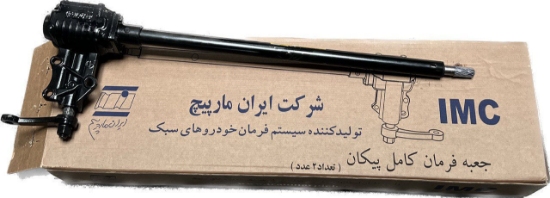 شرکت ایران مارپیچ
IMC
تولیدکننده سیستم فرمان خودروهای سبک
جعبه فرمان کامل پیکان ( تعداد ۲ عدد )
ایران مارپیچ
IMC